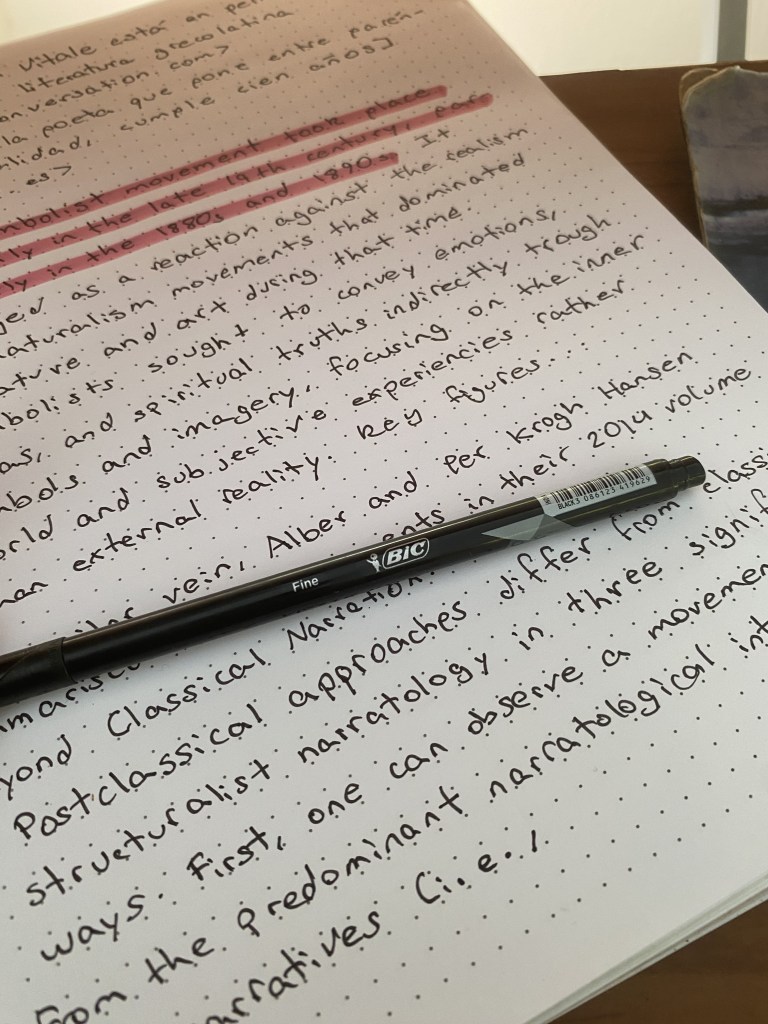 Vitale está en per
literatura grecolatina
onversation.com>
la poeta que pone entre parén-
nlidad, cumple cien años]
es>
mbolist movement took place
ly in the late 19th century, par
ly in the 1880s and 1890s. It
ged as a reaction against the realism
naturalism movements that dominated
ature and art during that time.
bolists sought to convey emotions,
as, and spiritual truths indirectly trough
mbols and imagery, focusing on the inner
orld and subjective experiencies rather
han external reality. Key figures...
vein, Alber and Per Krogh Hansen
ents in their 2014 volume
yond Classical Narration.
Postclassical approaches differ from classi
structuralist narratology in three signif
ways. First, one can observe a movemen
From the predominant narratological int
arratives (i.e.,
Fine
BIC
BLACK
3 086123 419629